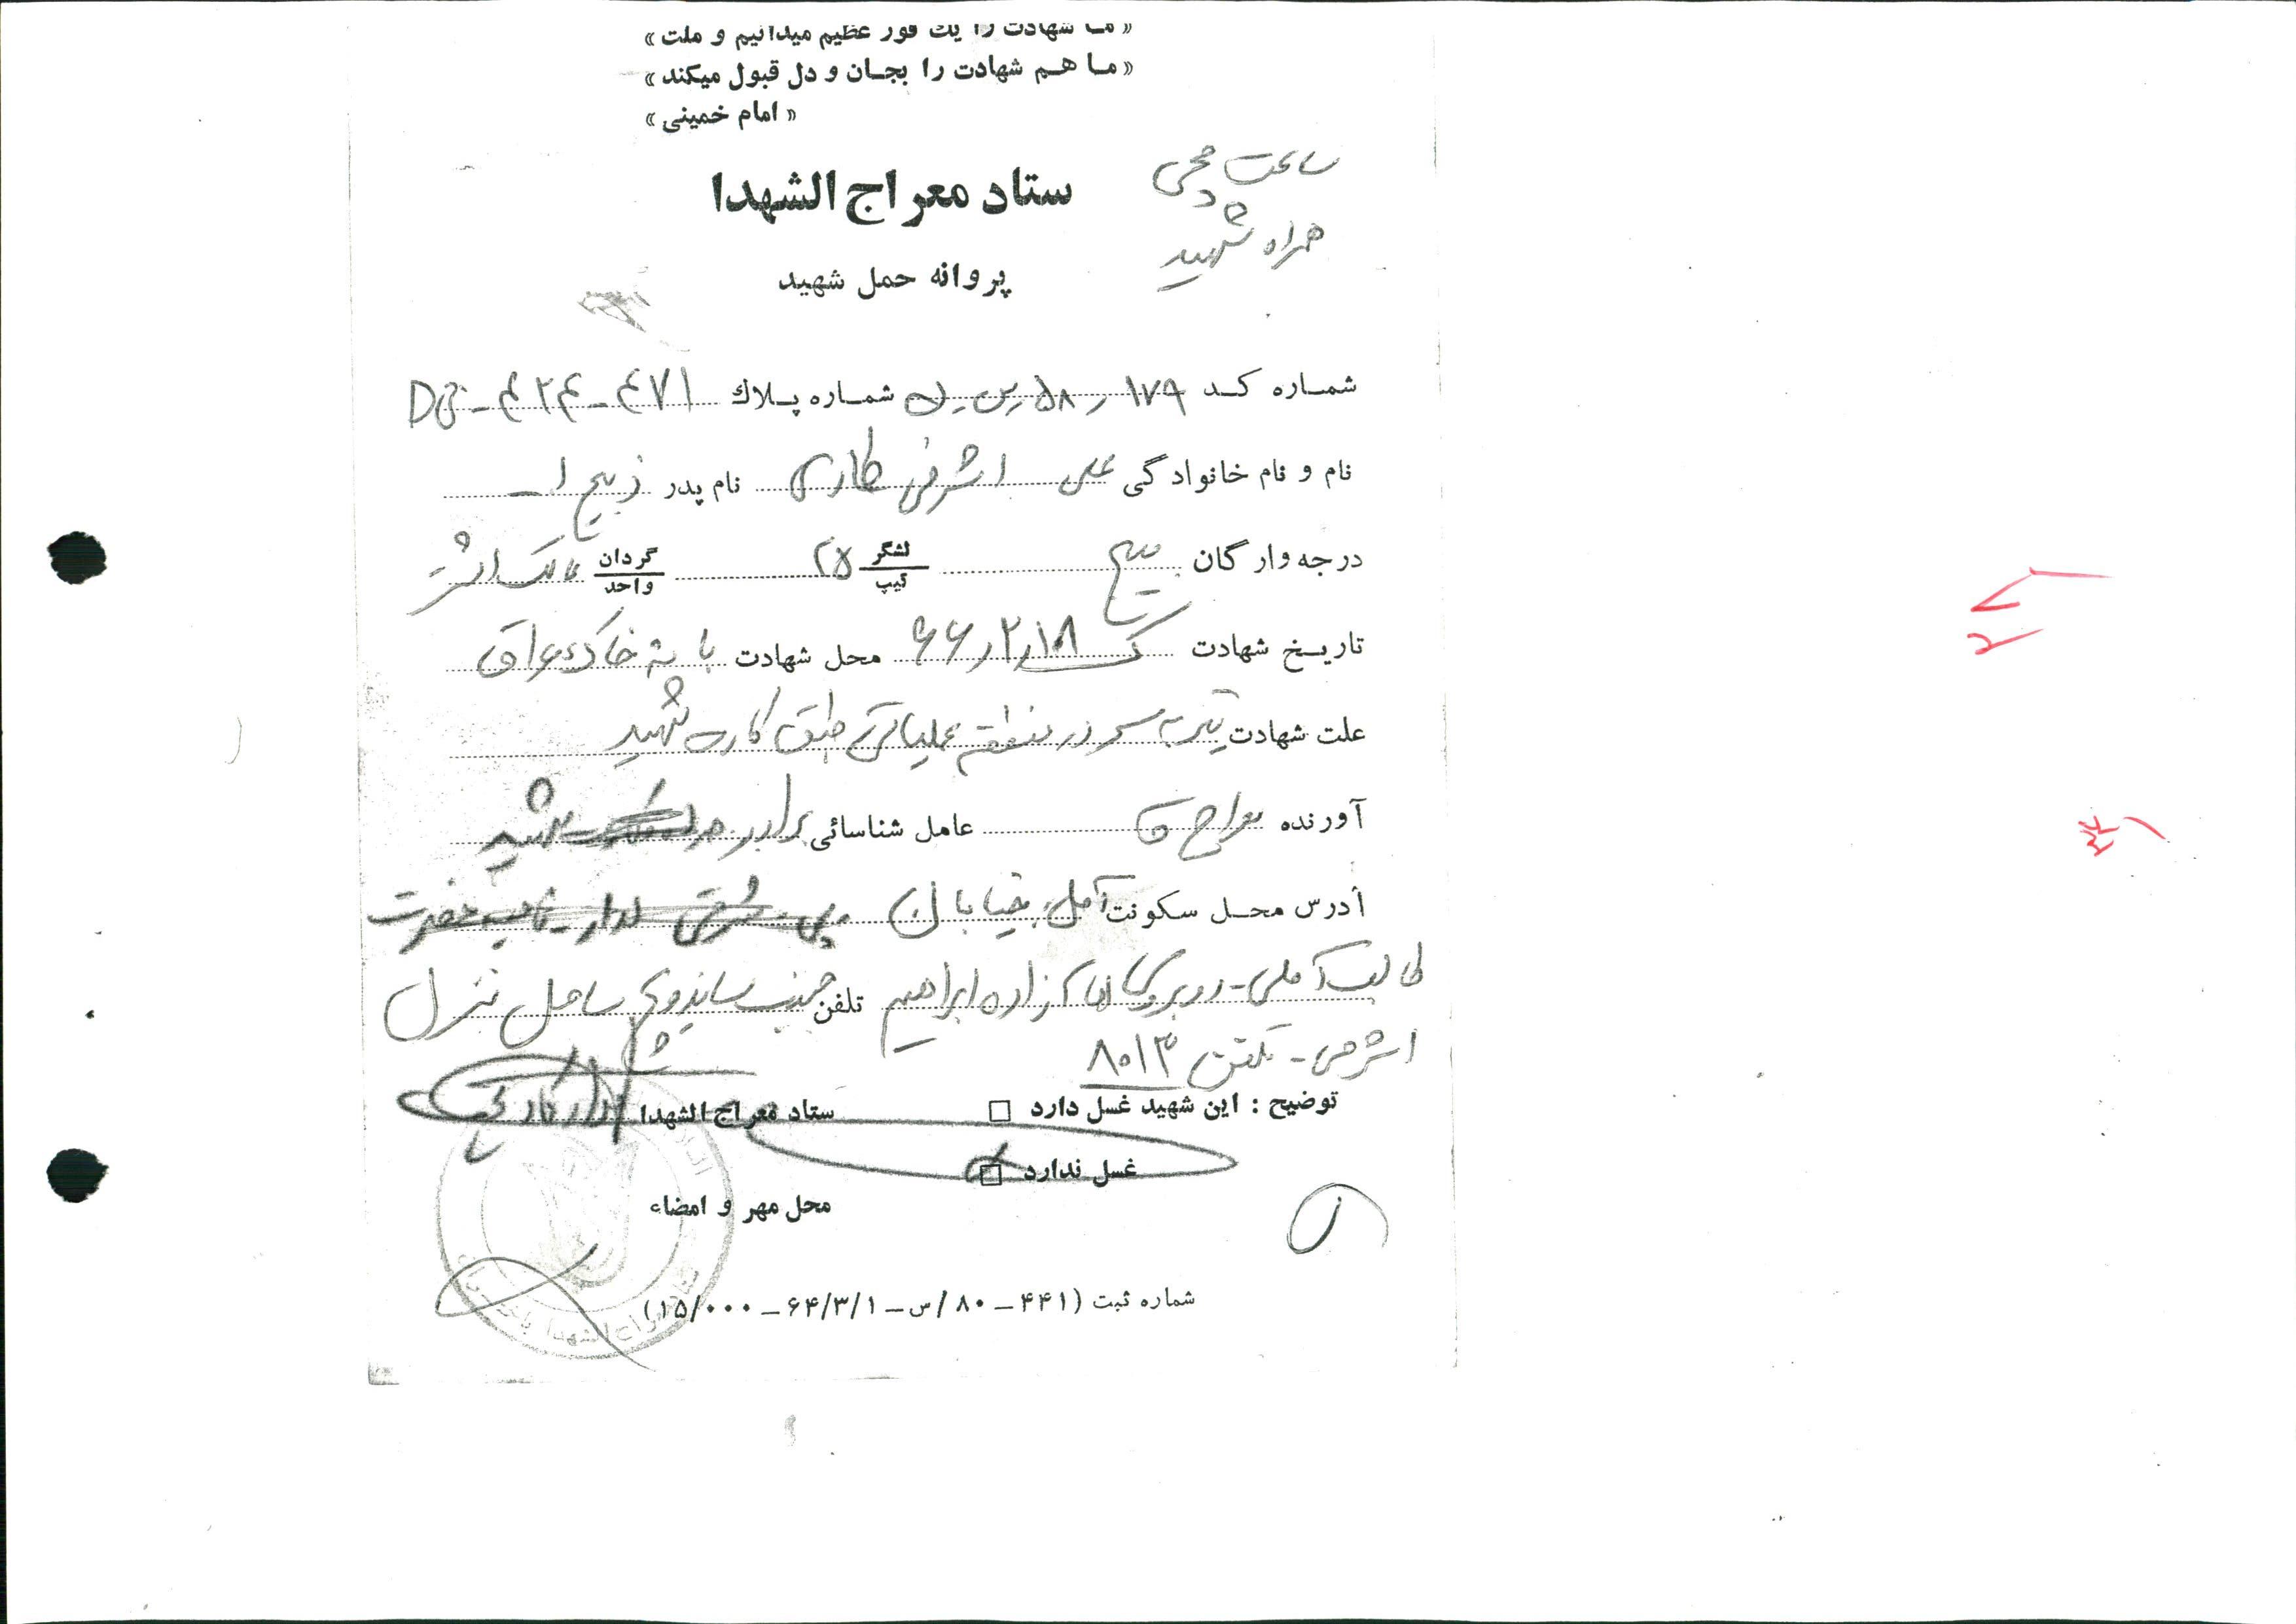 « ما شهادت را یک فوز عظیم میدانیم و ملت »
« ما هم شهادت را بجان و دل قبول میکند »
« امام خمینی »
ساعت مچی
همراه شهید
ستاد معراج الشهدا
پروانه حمل شهید
شماره کد ۱۷۹ر۵۸ر شماره پلاك ۴۷۱-۲۴
نام و نام خانوادگی علی اشرفی نام پدر ذبیح ا...
درجه وارگان بسیج لشگر تیپ ۲۵ گردان واحد مالک اشتر
تاریخ شهادت ۶۶٫۲٫۱۸ محل شهادت بانه خاک عراق
علت شهادت تیر به سر در منطقه عملیاتی طبق کارت شهید
آورنده معراج عامل شناسائی برادر شهید
آدرس محل سکونت آمل خیابان
طالب آملی - روبروی امام زاده ابراهیم تلفن جنب ساندویچی ساحل منزل
اشرفی - تلفن ۸۰۱۳
توضیح : این شهید غسل دارد □ ستاد معراج الشهدا
غسل ندارد □
محل مهر و امضاء
شماره ثبت (۴۴۱ – ۸۰/س – ۶۴/۳/۱ – ۱۵/۰۰۰)